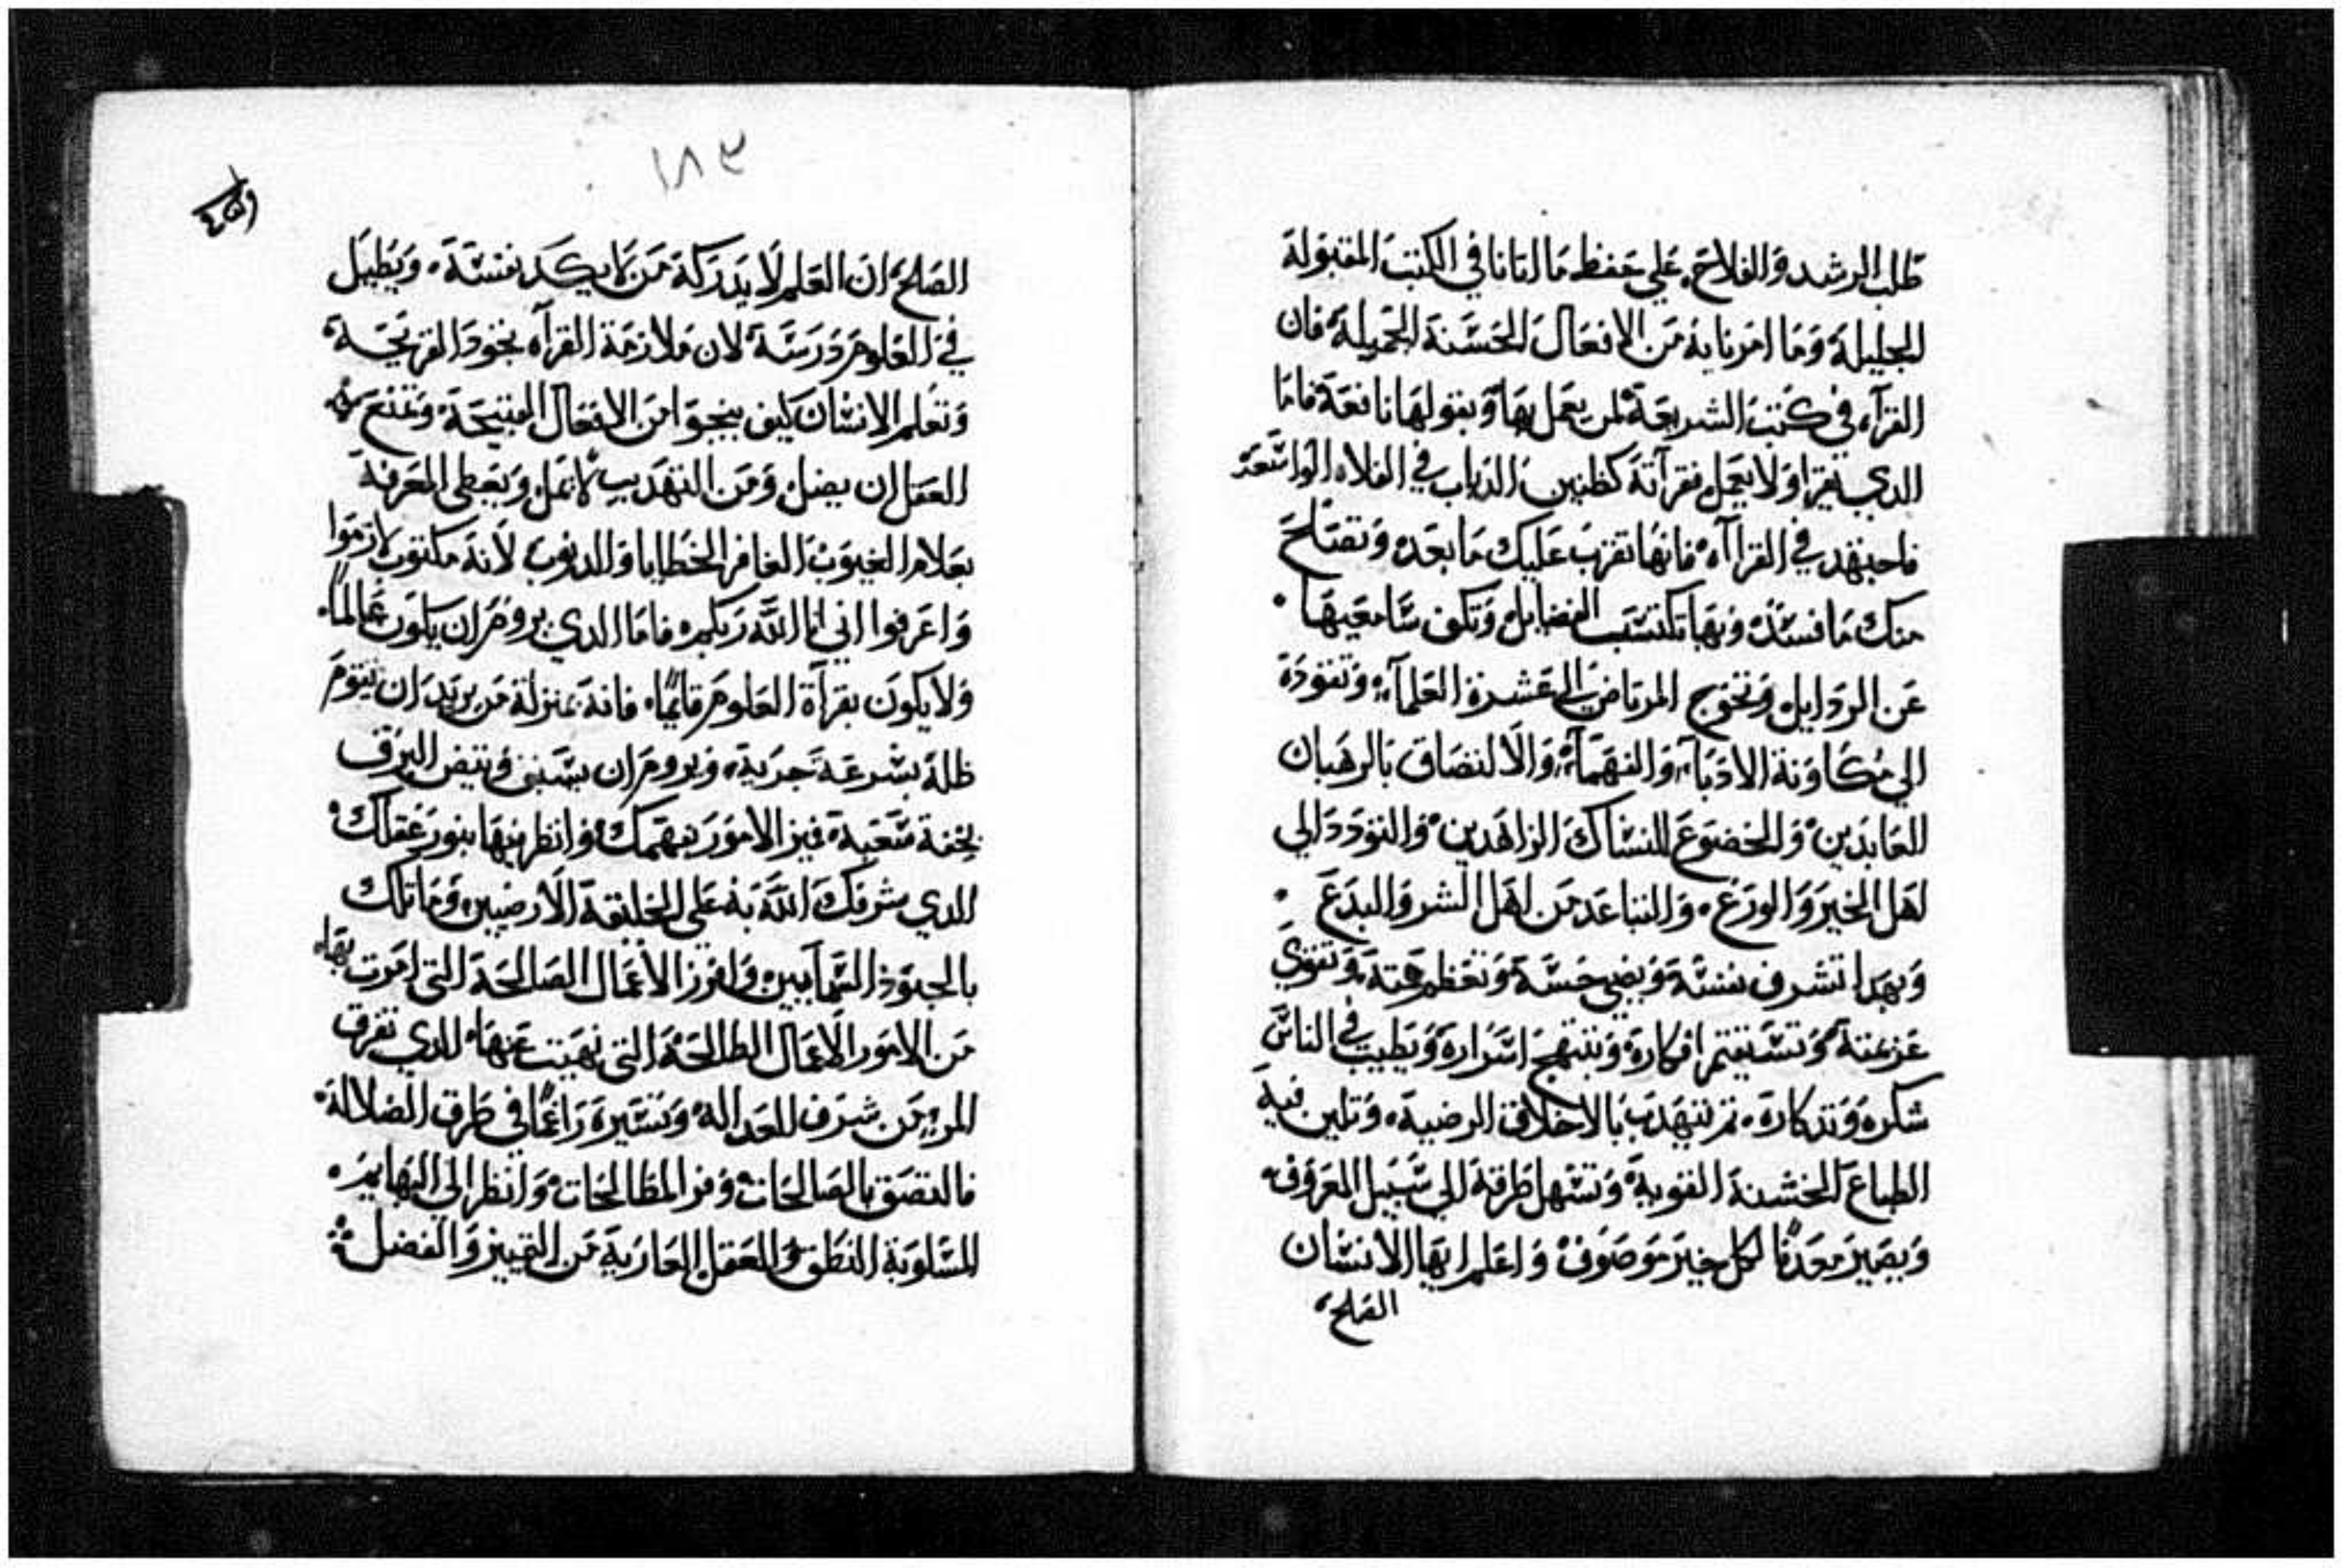 طلب الرشد والفلاح، علي حفظ ما اتانا في الكتب المقبوله
الجليله وما امرنا به من الافعال الحسنة الجميله فان
القرآه في كتب الشريعة لمن يعمل بها ويقولها نافعة فاما
الدي يقرا ولا يعمل فقرآته كطنين الدباب في الفلاه الواسعة
فاجتهد في القراآه فانها تقرب عليك ما بعد وتصلح
منك ما فسد وبها تكتسب الفضايل وتكف سامعيها
عن الردايل وتخرج المرتاض الي عشرة العلمآء وتقوده
الي مكاونة الادبآء والفهمآء والالتصاق بالرهبان
العابدين والخضوع للنساك الزاهدين والتودد الي
اهل الخير والورع، والتباعد من اهل الشر والبدع
وبهدا تشرف نفسة ويضي حسة وتعظم همتة وتقوي
عزيمتة وتستقيم افكارة وتبتهج اسرارة ويطيب في الناس
شكره وتدكارة، ثم تتهدب بالاخلاق الرضية، وتلين فية
الطباع الخشنة القوية وتسهل طرقة الي سبيل المعروف
ويصير معدنًا لكل خير موصوف واعلم ايها الانسان
الصلح
١٨٣
الصلح ان العلم لا يدركة من لا يكد نفسة، ويطيل
في العلوم درسة لان ملازمة القرآه تجود القريحة
وتعلم الانسان كيف ينجوا من الافعال القبيحة وتمنع
العقل ان يضل ومن التهديب لا يمل ويعطي المعرفة
بعلام الغيوب الغافر الخطايا والدنوب لانة مكتوب لازموا
واعرفوا اني انا الله ربكم فاما الدي يروم ان يكون عالمًا
ولا يكون بقرآة العلوم قايمًا، فانة بمنزلة من يريد ان يقوم
ظلة بسرعة جرية، ويروم ان يسبق وتيض البرق
بخفة سعية فميز الامور بفهمك وانظر فيها بنور عقلك
الدي شرفك الله به علي الخليقة الارضيين وماتلك
بالجنود السمآيين وافرز الاعمال الصالحة التي امرت بها
من الامور الاعمال الطالحة التي نهيت عنها الدي تفرق
المرء من شرف العداله وتسيره راغمًا في طرق الضلالة
فالتصق بالصالحات وفز المطالحات وانظر الي البهايم
المسلوبة النطق والعقل العارية من التمييز والفضل